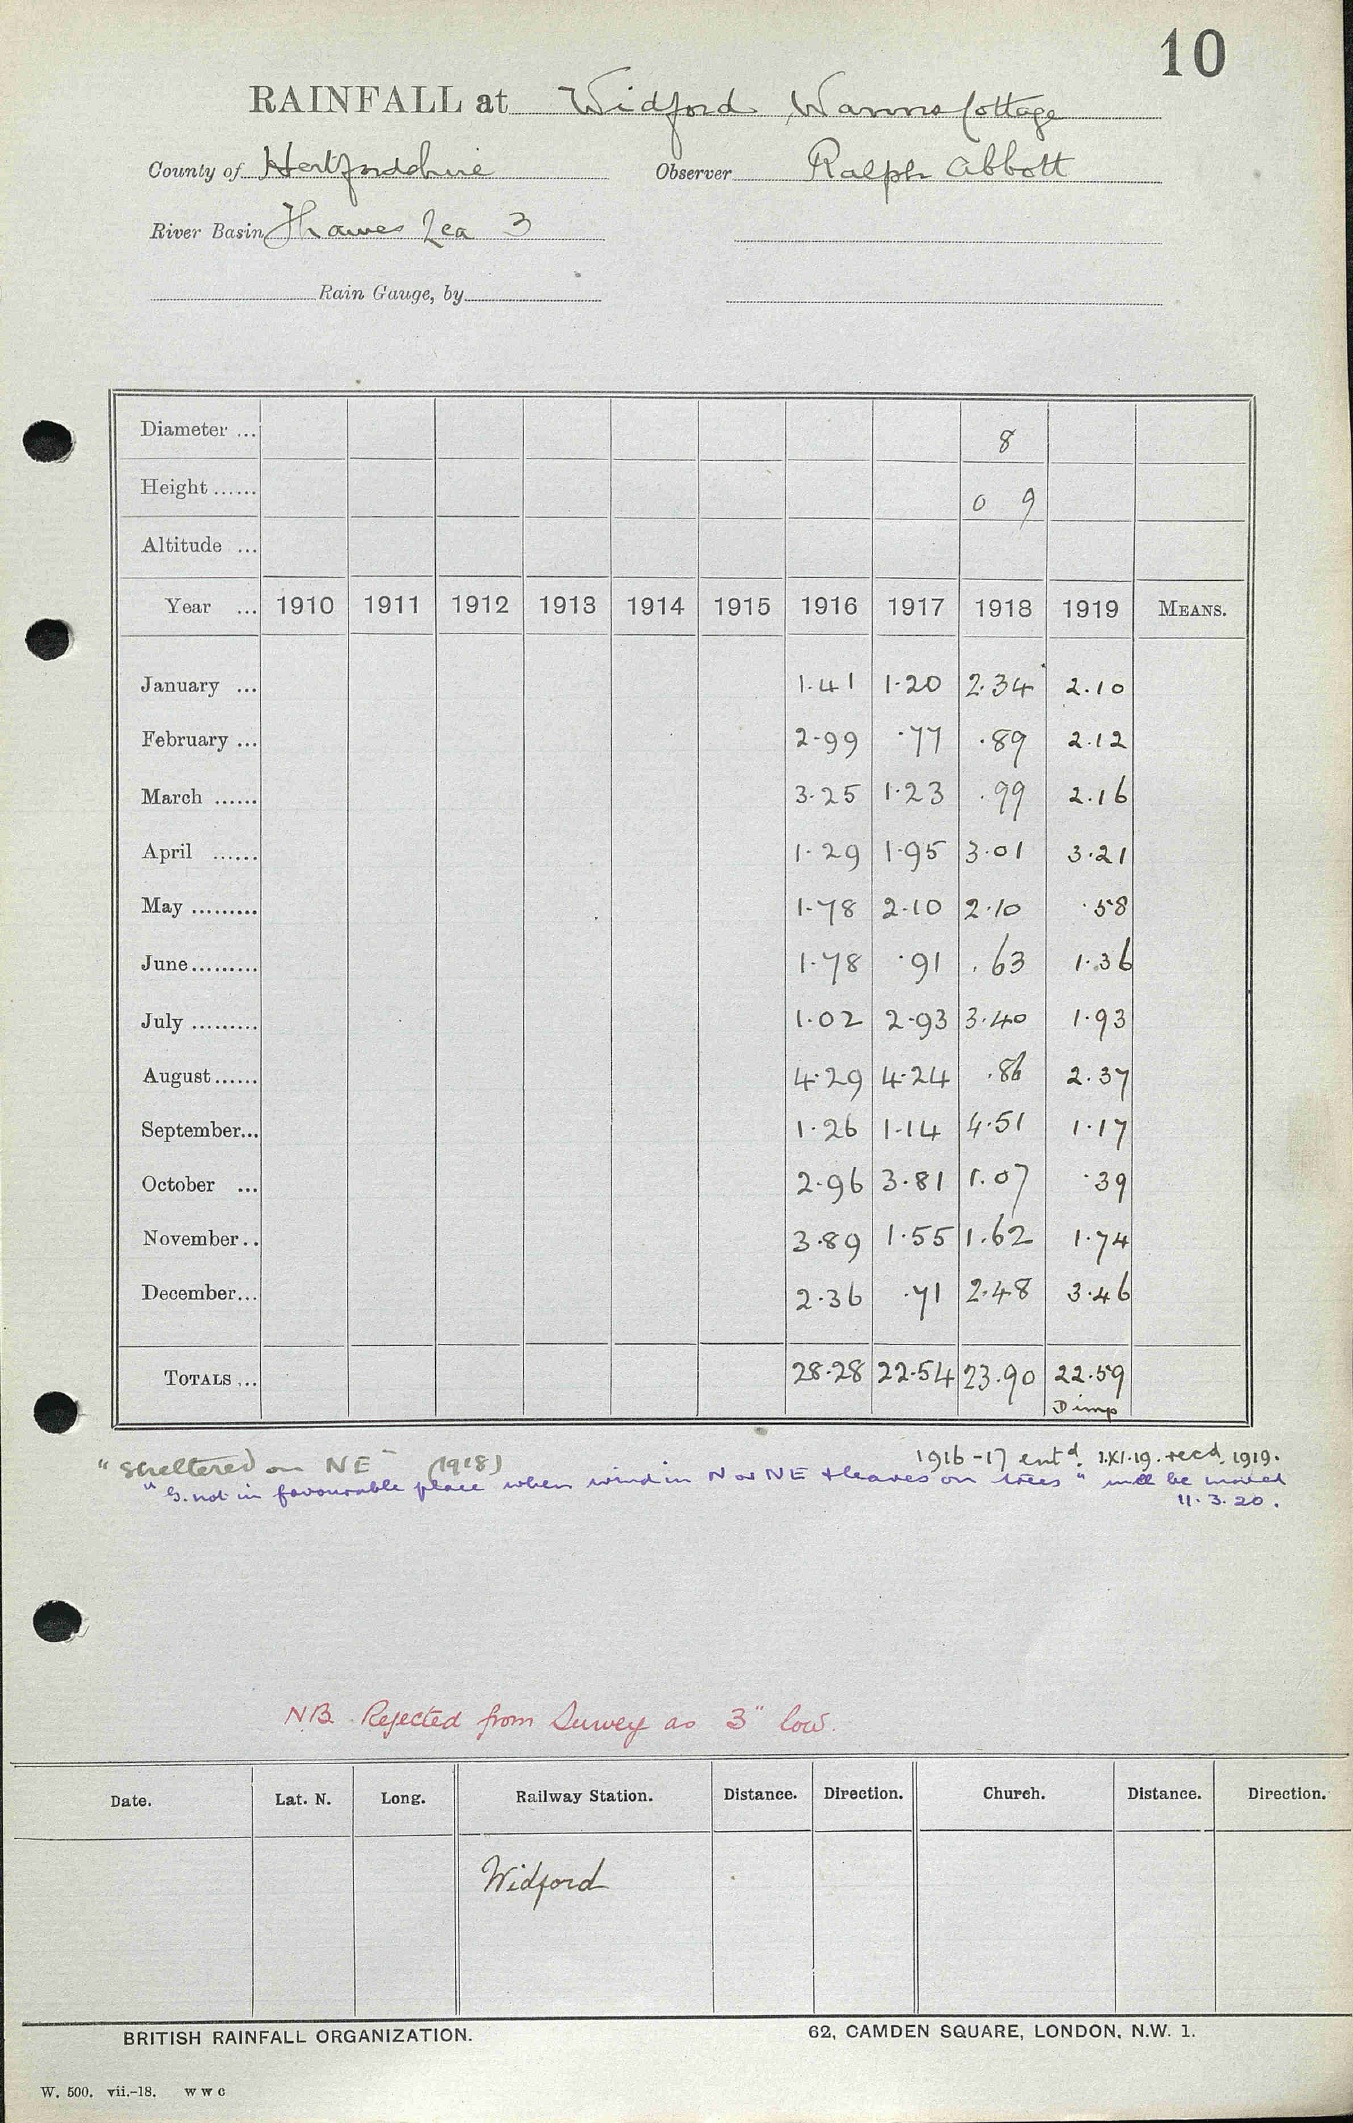 10
RAINFALL at Widford Wanns Cottage
County of Hertfordshire Observer Ralph Abbott
River Basin Thames Lea 3
Rain Gauge, by
Diameter ... 8
Height ...... 0 9
Altitude ...
Year ... 1910 1911 1912 1913 1914 1915 1916 1917 1918 1919 MEANS.
January ... 1.41 1.20 2.34 2.10
February ... 2.99 .77 .89 2.12
March ...... 3.25 1.23 .99 2.16
April ...... 1.29 1.95 3.01 3.21
May ......... 1.78 2.10 2.10 .58
June ......... 1.78 .91 .63 1.36
July ......... 1.02 2.93 3.40 1.93
August ...... 4.29 4.24 .86 2.37
September... 1.26 1.14 4.51 1.17
October ... 2.96 3.81 1.07 .39
November.. 3.89 1.55 1.62 1.74
December... 2.36 .71 2.48 3.46
TOTALS ... 28.28 22.54 23.90 22.59
D imp
"Sheltered on NE" (1918) 1916-17 entd. 1.XI.19. recd. 1919.
"G. not in favourable place when wind in N or NE & leaves on trees" will be moved
11.3.20.
NB. Rejected from Survey as 3" low.
Date. Lat. N. Long. Railway Station. Distance. Direction. Church. Distance. Direction.
Widford
BRITISH RAINFALL ORGANIZATION. 62, CAMDEN SQUARE, LONDON, N.W. 1.
W. 500. vii.-18. W W C